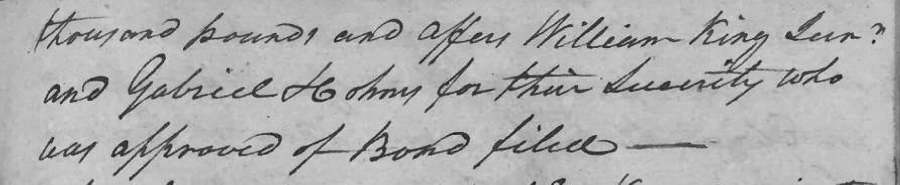 thousand pounds and affers William King Junr
and Gabriel Hohns for thier Security who
was approved of Bond filed —